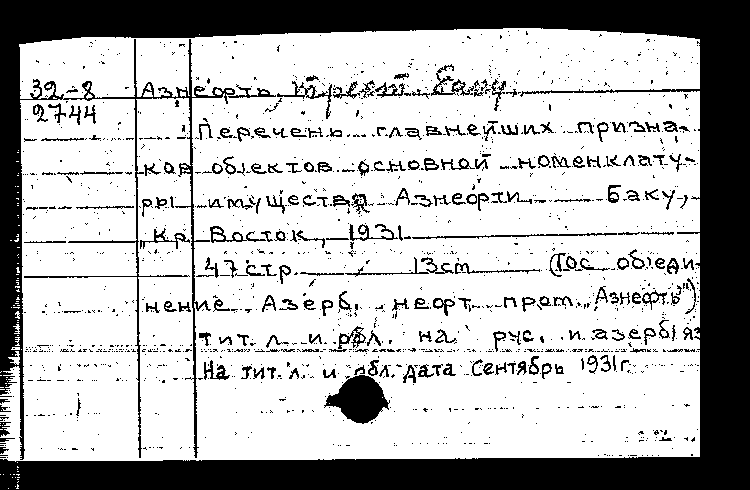 32-8
2744
Азнефть, трест. Баку.
Перечень главнейших призна-
ков об'ектов основной номенклату-
ры имущества Азнефти. Баку,
"Кр. Восток", 1931
47 стр. 13 см (Гос. об'еди-
нение Азерб. нефт. пром. "Азнефть")
тит. л. и обл. на рус. и азерб. яз
На тит. л. и обл. дата Сентябрь 1931 г.